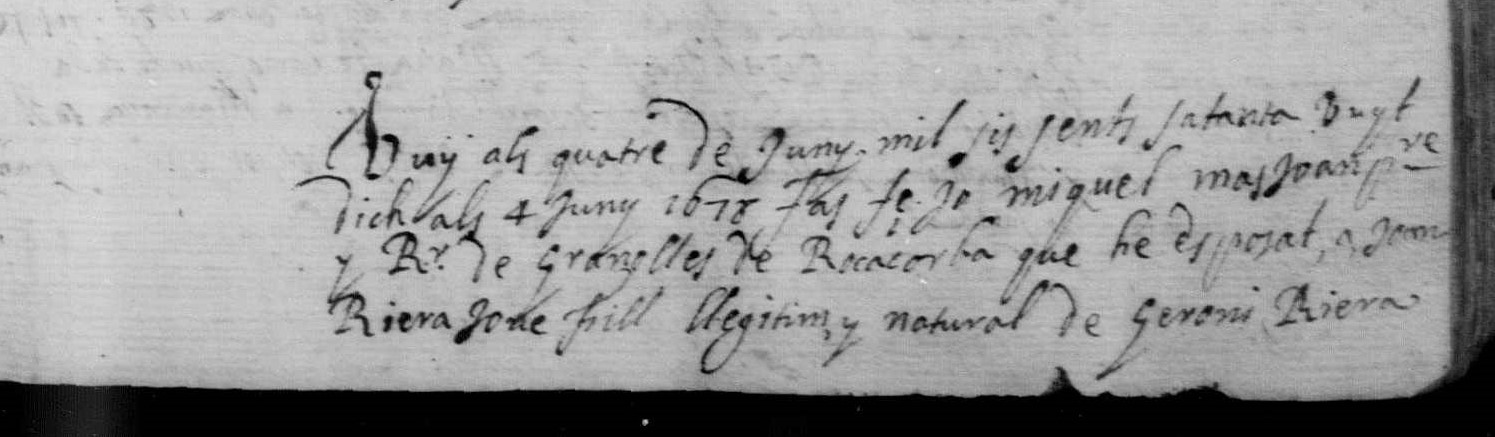 Vuÿ als quatre de Juny mil sis sents satanta vuyt
dich als 4 Juny 1678 fas fe Jo miquel masJoan pre
y Rr. de Granolles de Rocacorba que he esposat, a Jaum
Riera Jove fill llegitim y natural de Geroni Riera